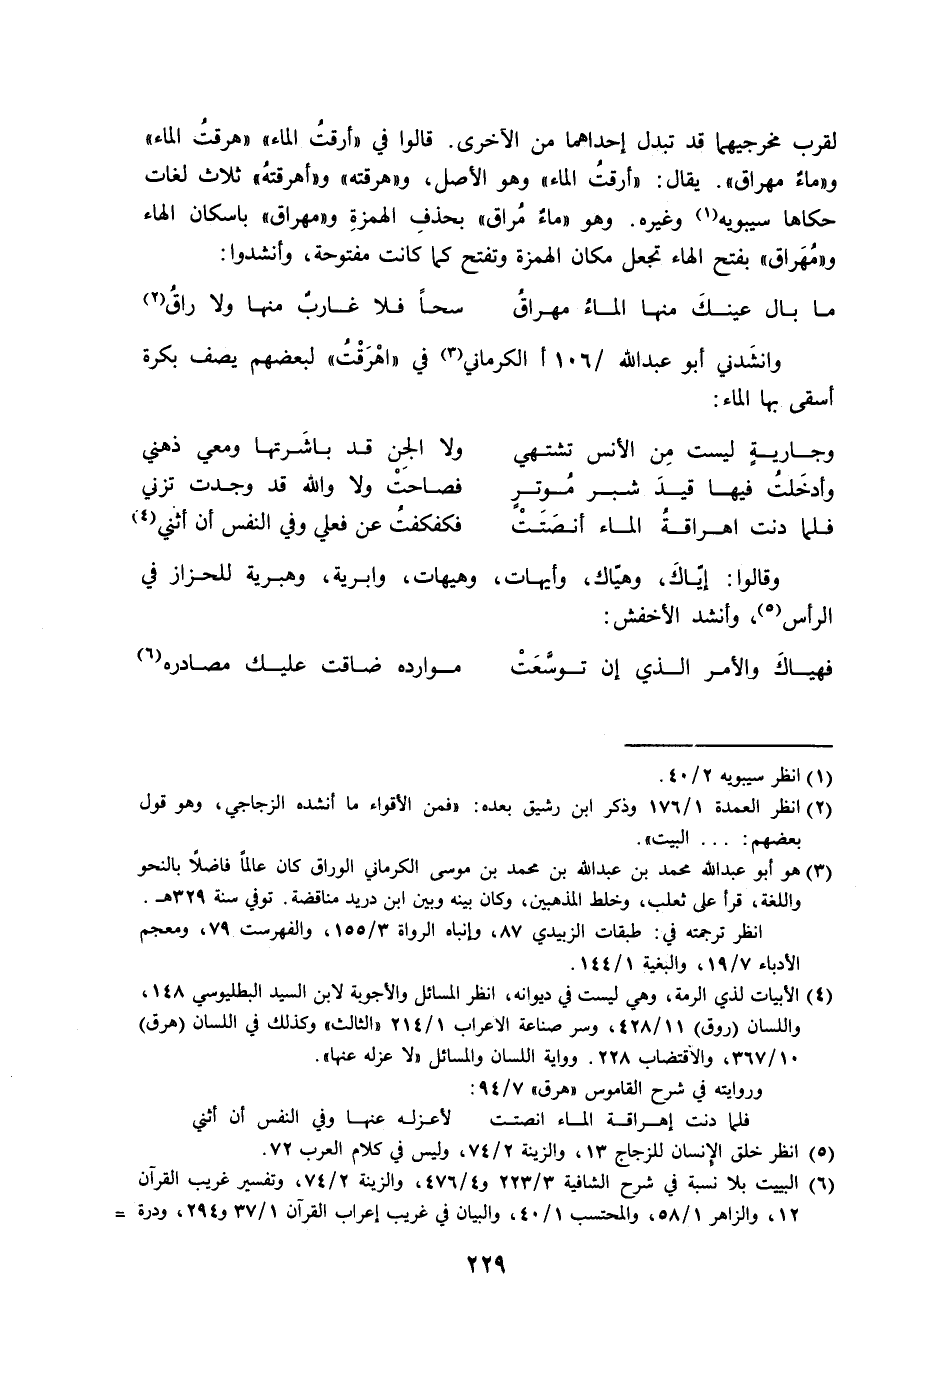 لقرب مخرجيهما قد تبدل إحداهما من الأخرى. قالوا في «أرقتُ الماء» «هرقتُ الماء»
و«ماءٌ مهراق». يقال: «أرقتُ الماء» وهو الأصل، و«هرقته» و«أهرقتهُ» ثلاث لغات
حكاها سيبويه(١) وغيره. وهو «ماءٌ مُراق» بحذفِ الهمزةِ و«مهراق» باسكان الهاء
و«مُهَراق» بفتح الهاء تجعل مكان الهمزة وتفتح كما كانت مفتوحة، وأنشدوا:
ما بال عينكَ منها الماءُ مهراقُ سحاً فلا غاربٌ منها ولا راقُ(٢)
وانشَدني أبو عبدالله /١٠٦ أ الكرماني(٣) في «اهْرَقْتُ» لبعضهم يصف بكرة
أسقى بها الماء:
وجاريةٍ ليست مِن الأنس تشتهي ولا الجنِ قد باشَرتها ومعي ذهني
وأدخَلتُ فيها قيدَ شبر مُوترٍ فصاحتْ ولا والله قد وجدت تزني
فلما دنت اهراقةُ الماء أنصَتَتْ فكفكفتُ عن فعلي وفي النفس أن أثني(٤)
وقالوا: إيّاكَ، وهيّاك، وأيهات، وهيهات، وابرية، وهبرية للحزاز في
الرأس(٥)، وأنشد الأخفش:
فهياكَ والأمر الذي إن توسَّعَتْ موارده ضاقت عليك مصادره(٦)
(١) انظر سيبويه ٤٠/٢.
(٢) انظر العمدة ١٧٦/١ وذكر ابن رشيق بعده: «فمن الأقواء ما أنشده الزجاجي، وهو قول
بعضهم: ... البيت».
(٣) هو أبو عبدالله محمد بن عبدالله بن محمد بن موسى الكرماني الوراق كان عالماً فاضلاً بالنحو
واللغة، قرأ على ثعلب، وخلط المذهبين، وكان بينه وبين ابن دريد مناقضة. توفي سنة ٣٢٩هـ.
انظر ترجمته في: طبقات الزبيدي ٨٧، وإنباه الرواة ١٥٥/٣، والفهرست ٧٩، ومعجم
الأدباء ١٩/٧، والبغية ١٤٤/١.
(٤) الأبيات لذي الرمة، وهي ليست في ديوانه، انظر المسائل والأجوبة لابن السيد البطليوسي ١٤٨،
واللسان (روق) ٤٢٨/١١، وسر صناعة الاعراب ٢١٤/١ «الثالث» وكذلك في اللسان (هرق)
٣٦٧/١٠، والأقتضاب ٢٢٨. ورواية اللسان والمسائل «لا عزله عنها».
وروايته في شرح القاموس «هرق» ٩٤/٧:
فلما دنت إهراقة الماء انصتت لأعزله عنها وفي النفس أن أثني
(٥) انظر خلق الإنسان للزجاج ١٣، والزينة ٧٤/٢، وليس في كلام العرب ٧٢.
(٦) البيت بلا نسبة في شرح الشافية ٢٢٣/٣ و٤٧٦/٤، والزينة ٧٤/٢، وتفسير غريب القرآن
١٢، والزاهر ٥٨/١، والمحتسب ٤٠/١، والبيان في غريب إعراب القرآن ٣٧/١ و٢٩٤، ودرة =
٢٢٩